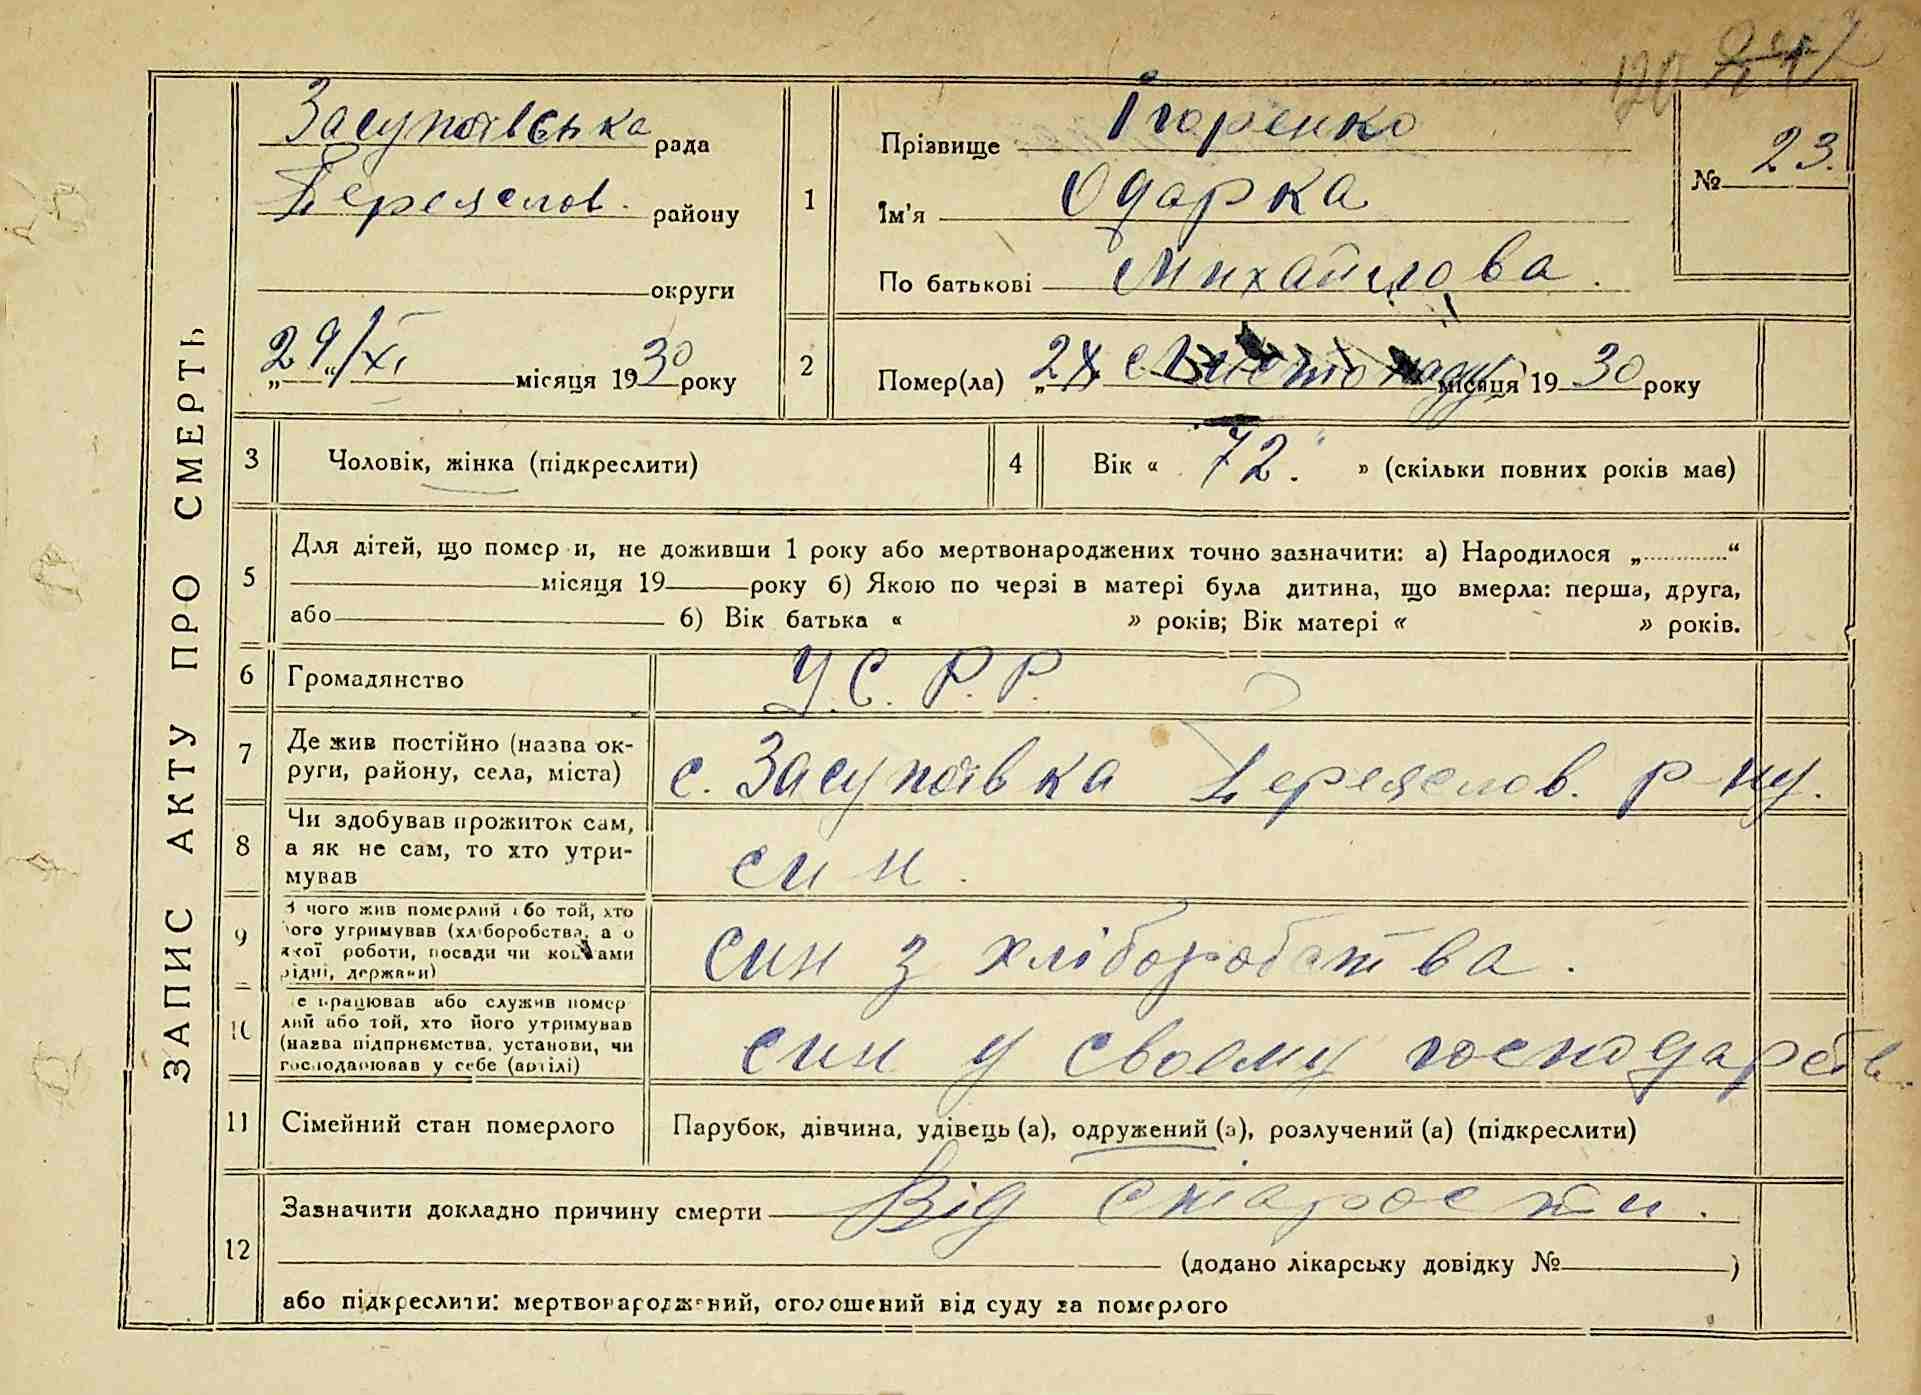 120
ЗАПИС АКТУ ПРО СМЕРТЬ
Засупоївська рада
Переяслов. району
округи
„29“/XI місяця 1930 року
1
Прізвище Ігоренко
Ім'я Одарка
По батькові Михайлова.
№ 23.
2
Помер(ла) „2 листопаду місяця 1930 року
3 Чоловік, жінка (підкреслити)
4 Вік « 72. » (скільки повних років має)
5 Для дітей, що помер и, не доживши 1 року або мертвонароджених точно зазначити: а) Народилося „............“
місяця 19 року б) Якою по черзі в матері була дитина, що вмерла: перша, друга,
або б) Вік батька « » років; Вік матері « » років.
6 Громадянство У.С.Р.Р.
7 Де жив постійно (назва ок-
руги, району, села, міста) с. Засупоївка Переяслов. р-ну.
8 Чи здобував прожиток сам,
а як не сам, то хто утри-
мував син.
9 З чого жив померлий або той, хто
його утримував (хліборобства, а о
якої роботи, посади чи коштами
рідні, держави) син з хліборобства.
10 Де працював або служив помер
лий або той, хто його утримував
(назва підприємства, установи, чи
господарював у себе (артілі) син у своєму господарстві.
11 Сімейний стан померлого Парубок, дівчина, удівець (а), одружений (а), розлучений (а) (підкреслити)
12 Зазначити докладно причину смерти Від старости.
(додано лікарську довідку № )
або підкреслити: мертвонароджений, оголошений від суду за померлого